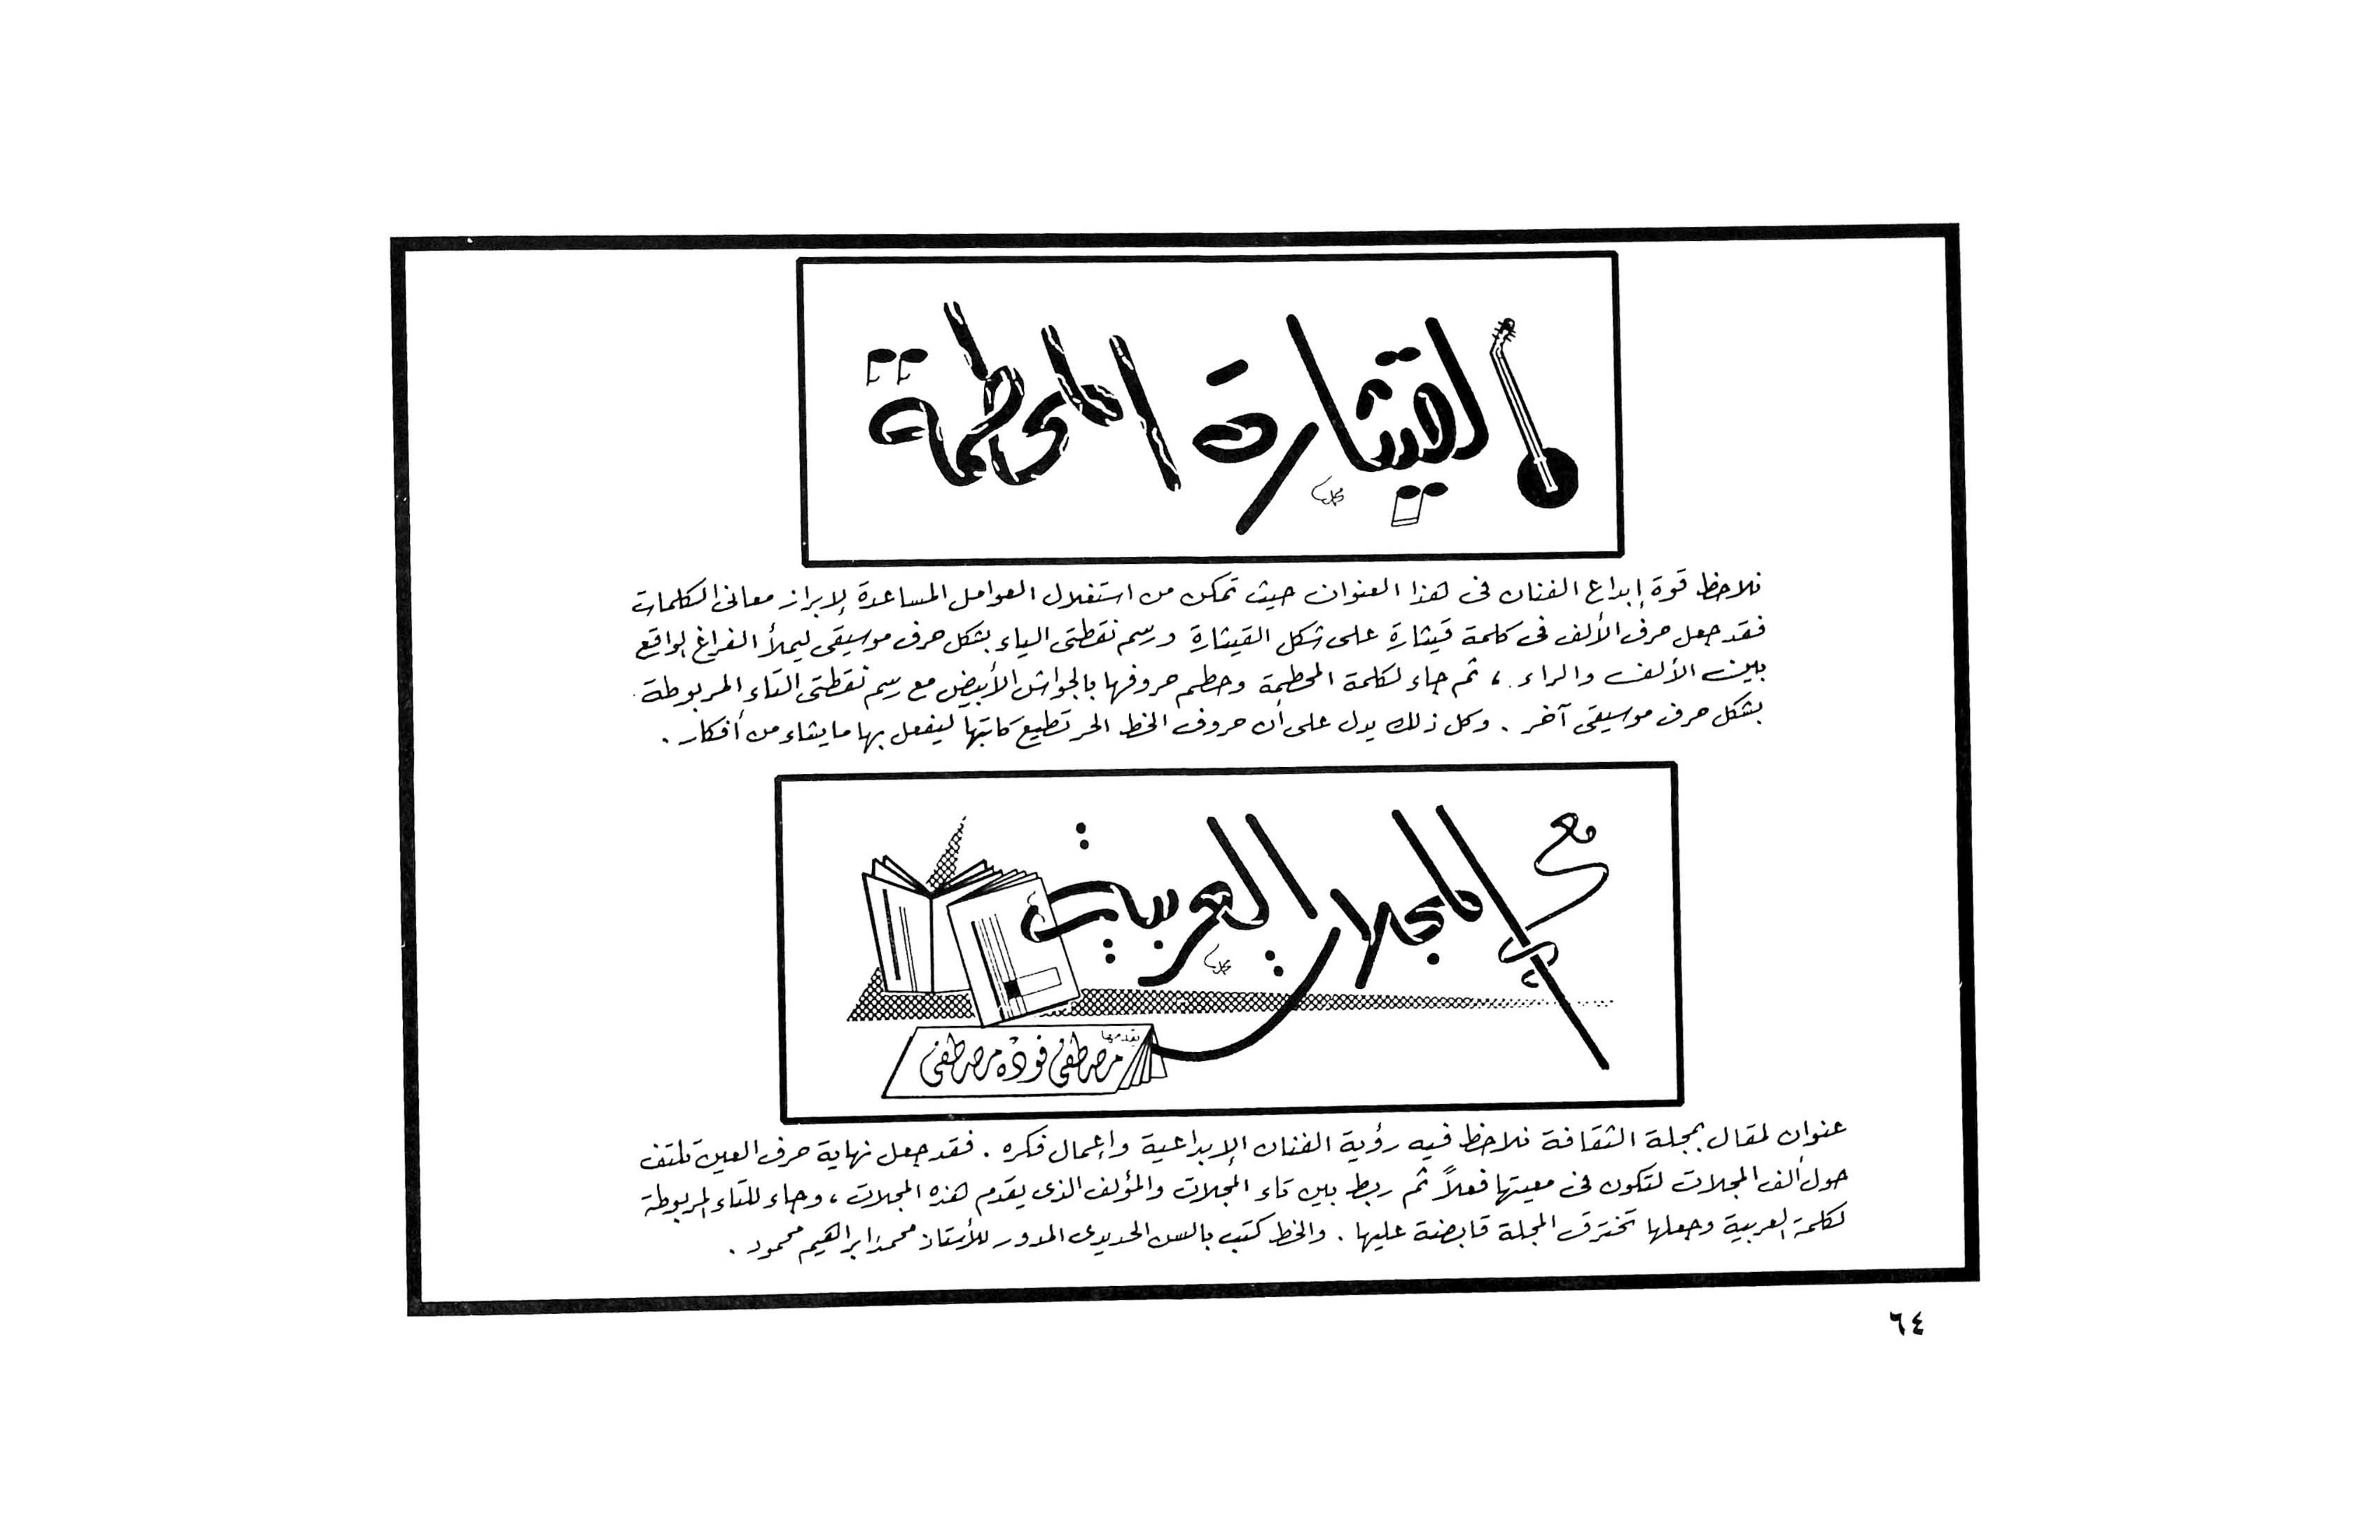 القيثارة المحطمة
نلاحظ قوة إبداع الفنان فى هذا العنوان حيث تمكن من استغلال العوامل المساعدة لإبراز معانى الكلمات
فقد جعل حرف الألف فى كلمة قيثارة على شكل القيثارة ورسم نقطتى الياء بشكل حرف موسيقى ليملأ الفراغ الواقع
بين الألف والراء . ، ثم جاء لكلمة المحطمة وحطم حروفها بالجواش الأبيض مع رسم نقطتى التاء المربوطة .
بشكل حرف موسيقى آخر . وكل ذلك يدل على أن حروف الخط الحر تطيع كاتبها ليفعل بها ما يشاء من أفكار .
مع المجلات العربية
يقدمها
مصطفى فوده مصطفى
عنوان لمقال بمجلة الثقافة نلاحظ فيه رؤية الفنان الإبداعية وإعمال فكره . فقد جعل نهاية حرف العين تلتف
حول ألف المجلات لتكون فى معيتها فعلاً ثم ربط بين تاء المجلات والمؤلف الذى يقدم هذه المجلات ، وجاء للتاء المربوطة
لكلمة العربية وجعلها تخترق المجلة قابضة عليها . والخط كتب بالسن الحديدى المدور للأستاذ محمد إبراهيم محمود .
٦٤